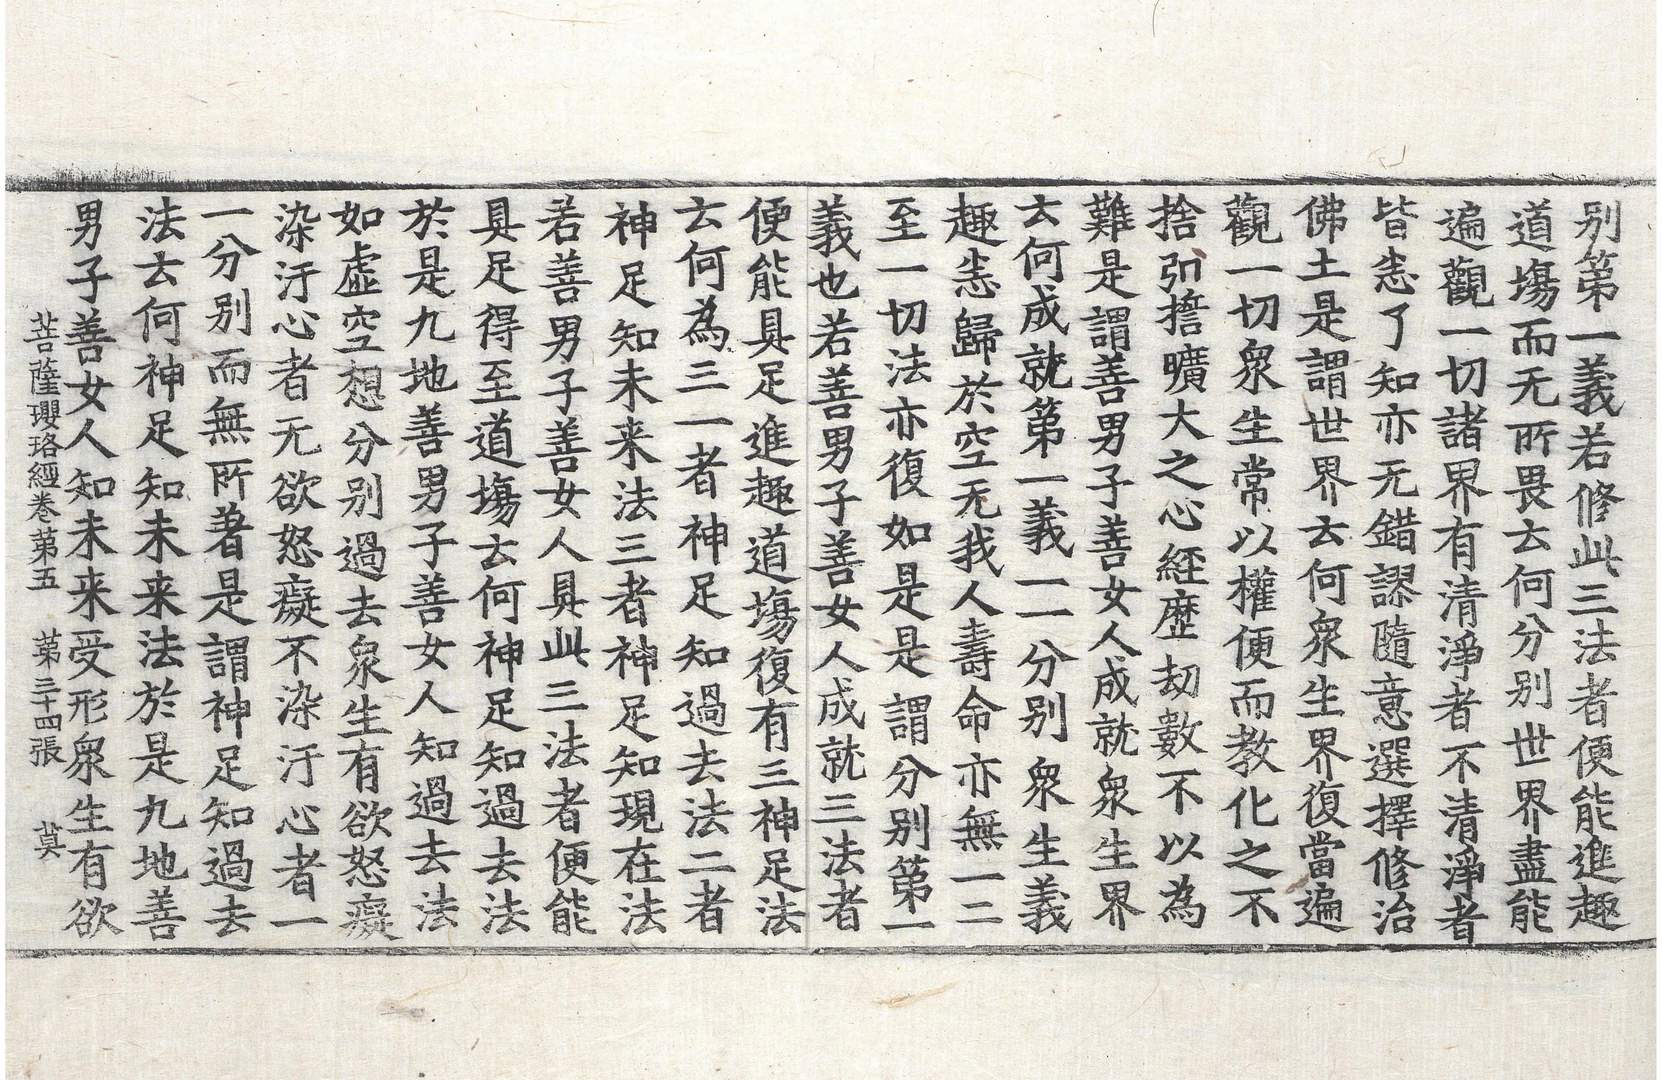 别第一義若修此三法者便能進趣
道場而无所畏云何分别世界盡能
遍觀一切諸界有清淨者不清淨者
皆悉了知亦无錯謬隨意選擇修治
佛土是謂世界云何衆生界復當遍
觀一切衆生常以權便而教化之不
捨弘擔曠大之心經歷劫數不以為
難是謂善男子善女人成就衆生界
云何成就第一義一一分别衆生義
趣悉歸於空无我人壽命亦無一二
至一切法亦復如是是謂分别第一
義也若善男子善女人成就三法者
便能具足進趣道場復有三神足法
云何為三一者神足知過去法二者
神足知未来法三者神足知現在法
若善男子善女人具此三法者便能
具足得至道場云何神足知過去法
於是九地善男子善女人知過去法
如虛空想分别過去衆生有欲怒癡
染汙心者无欲怒癡不染汙心者一
一分别而無所著是謂神足知過去
法云何神足知未来法於是九地善
男子善女人知未来受形衆生有欲
菩薩瓔珞經卷第五 第三十四張 莫